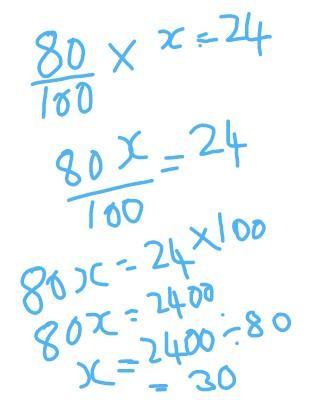 80/100 × x = 24
80x/100 = 24
80x = 24 × 100
80x = 2400
x = 2400 ÷ 80
= 30